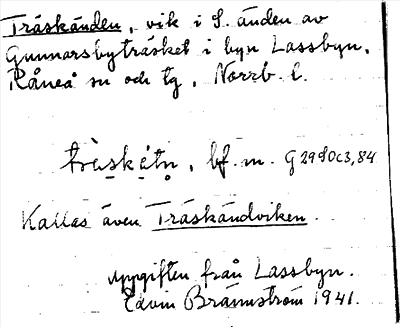 Träskänden, vik i S. änden av
Gunnarsbyträsket i byn Lassbyn,
Råneå sn och tg, Norrb. l.
bf. m. G 2980c3,84
Kallas även Träskändviken.
Uppgiften från Lassbyn.
Edvin Brännström 1941.